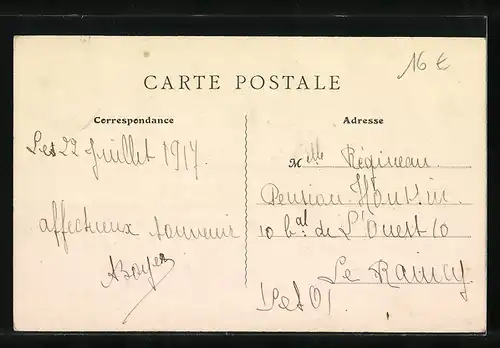 16 €
CARTE POSTALE
Correspondance
Adresse
Les 22 Juillet 1917.
affectueux souvenir
ABoyer
Melle Régineau.
Pension
10 bal de L'Ouest 10
Le Raincy